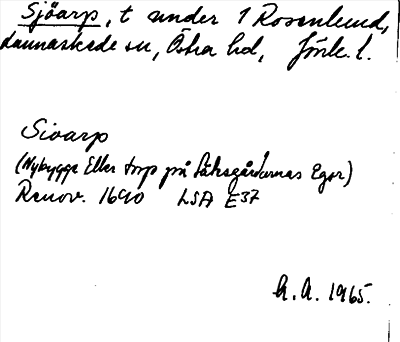 Sjöarp, t under 1 Rosenlund,
Lannaskede sn, Östra hd, Jönk. l.
Sioarp
(Nybygge Eller torp på Sätesgårdarnas Egor)
Renov. 1690 LSA E37
G. A. 1965.